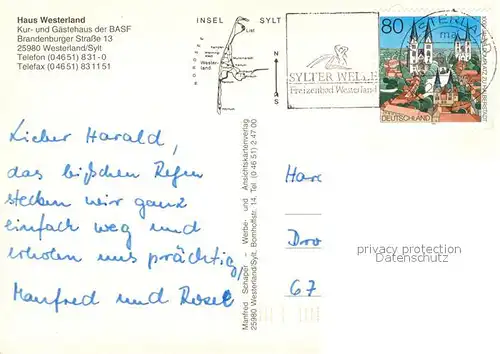 Haus Westerland
Kur- und Gästehaus der BASF
Brandenburger Straße 13
25980 Westerland/Sylt
Telefon (04651) 831-0
Telefax (04651) 831151
INSEL SYLT
List
Westerland
N
S
SYLTER WELLE
Freizeitbad Westerland
80
DEUTSCHLAND
Lieber Harald,
das bißchen Regen
stecken wir ganz
einfach weg und
erholen uns prächtig,
Manfred und Rosel
Manfred Schaper – Werbe- und Ansichtskartenverlag
25980 Westerland/Sylt, Bomhoffstr. 14, Tel. (0 46 51) 2 47 00
Har
Dro
67
privacy protection
Datenschutz